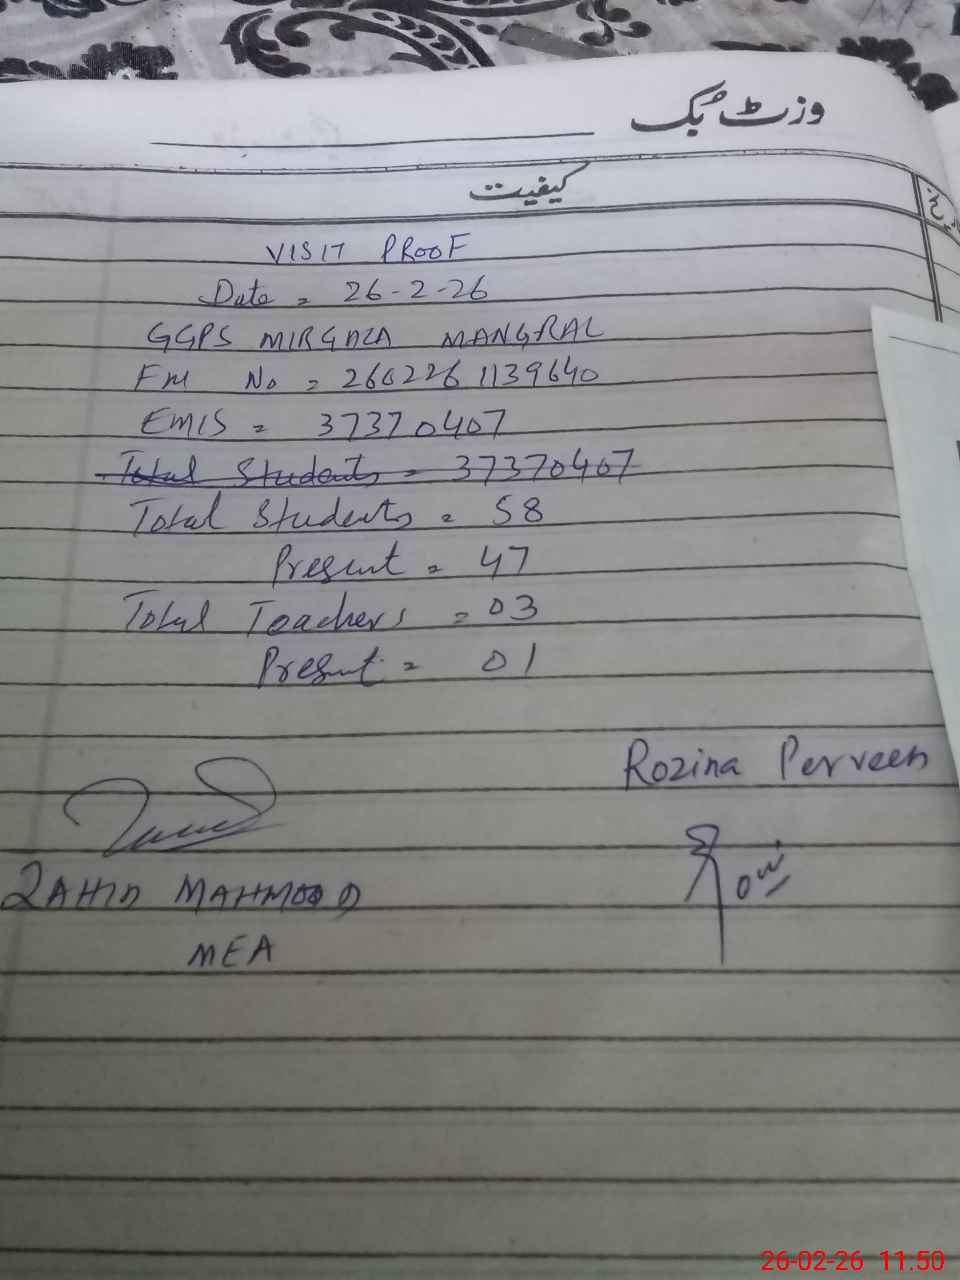 وزٹ بُک
کیفیت
تاریخ
VISIT PROOF
Date = 26-2-26
GGPS MIRGALA MANGRAL
FM No = 2602261139640
EMIS = 37370407
Total Students = 37370407
Total Students = 58
Present = 47
Total Teachers = 03
Present = 01
Rozina Perveen
ZAHID MAHMOOD
MEA
26-02-26 11.50